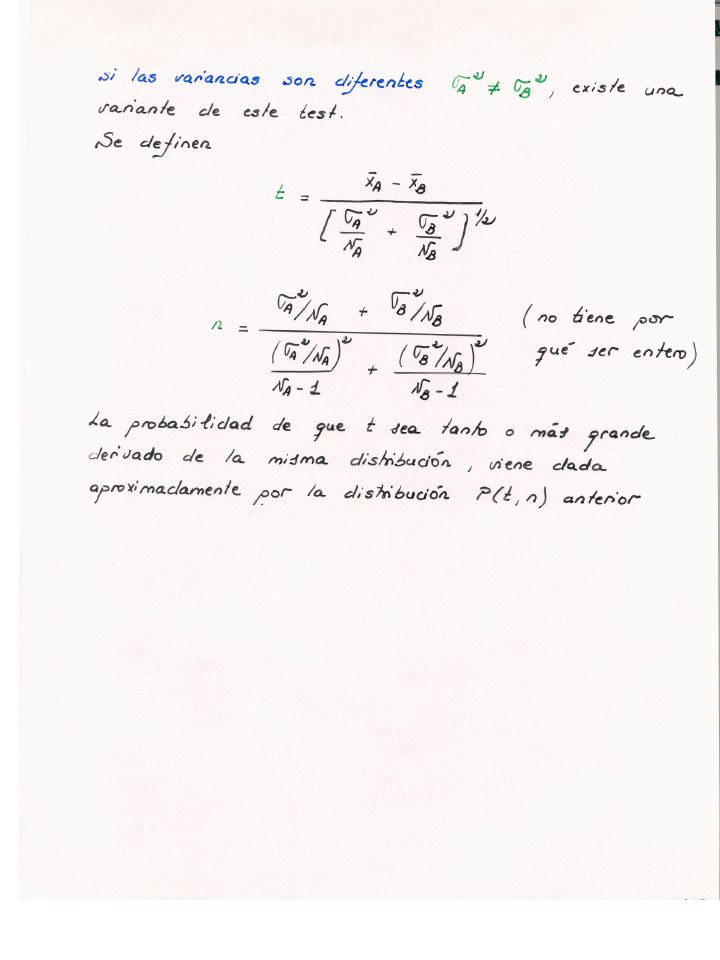 si las variancias son diferentes σ_A² ≠ σ_B², existe una
variante de este test.
Se definen
t = (x̄_A - x̄_B) / [σ_A²/N_A + σ_B²/N_B]^1/2
n = (σ_A²/N_A + σ_B²/N_B) / ((σ_A²/N_A)²/(N_A-1) + (σ_B²/N_B)²/(N_B-1)) (no tiene por
qué ser entero)
La probabilidad de que t sea tanto o más grande
derivado de la misma distribución, viene dada
aproximadamente por la distribución P(t, n) anterior